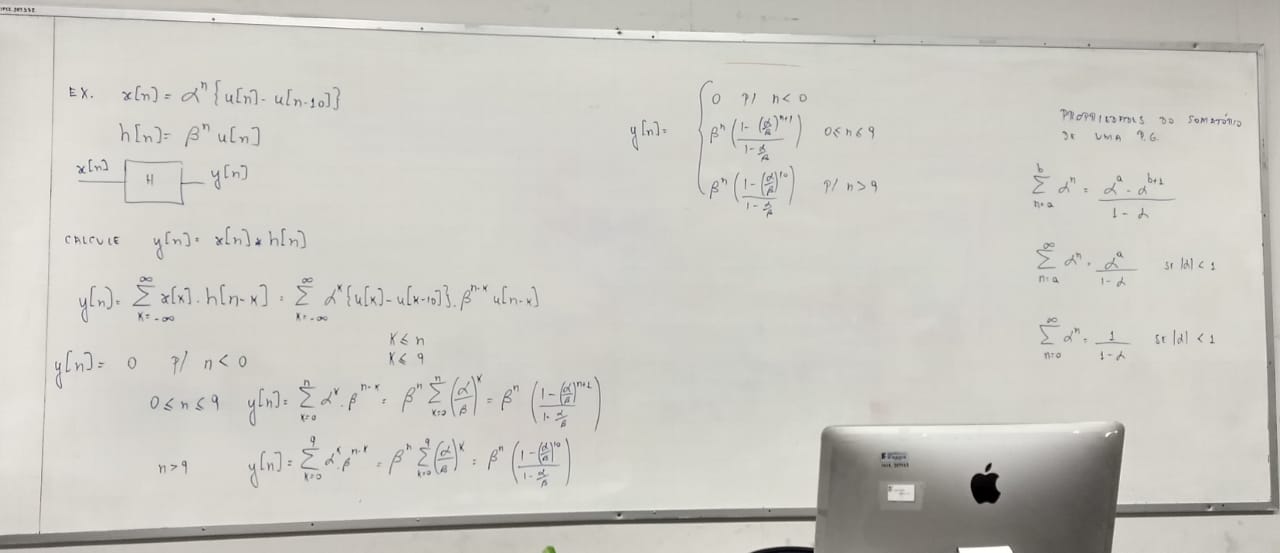 EX. x[n] = α^n {u[n] - u[n-10]}
h[n] = β^n u[n]
x[n] H y[n]
CALCULE y[n] = x[n] * h[n]
y[n] = ∑_{K=-∞}^{∞} x[K] . h[n-K] = ∑_{K=-∞}^{∞} α^K {u[K] - u[K-10]} . β^{n-K} u[n-K]
K ≤ n
K ≤ 9
y[n] = 0 P/ n < 0
0 ≤ n ≤ 9 y[n] = ∑_{K=0}^{n} α^K . β^{n-K} = β^n ∑_{K=0}^{n} (α/β)^K = β^n ((1 - (α/β)^{n+1})/(1 - α/β))
n > 9 y[n] = ∑_{K=0}^{9} α^K . β^{n-K} = β^n ∑_{K=0}^{9} (α/β)^K = β^n ((1 - (α/β)^{10})/(1 - α/β))
y[n] = {
0 P/ n < 0
β^n ((1 - (α/β)^{n+1})/(1 - α/β)) 0 ≤ n ≤ 9
β^n ((1 - (α/β)^{10})/(1 - α/β)) P/ n > 9
PROPRIEDADES DO SOMATÓRIO
DE UMA P.G.
∑_{n=a}^{b} α^n = (α^a - α^{b+1})/(1 - α)
∑_{n=a}^{∞} α^n = α^a/(1 - α) SE |α| < 1
∑_{n=0}^{∞} α^n = 1/(1 - α) SE |α| < 1